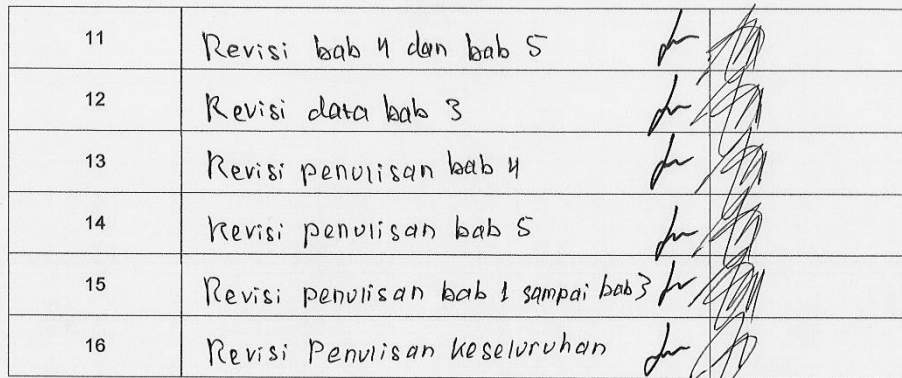 11 Revisi bab 4 dan bab 5
12 Revisi data bab 3
13 Revisi penulisan bab 4
14 Revisi penulisan bab 5
15 Revisi penulisan bab 1 sampai bab 3
16 Revisi Penulisan keseluruhan